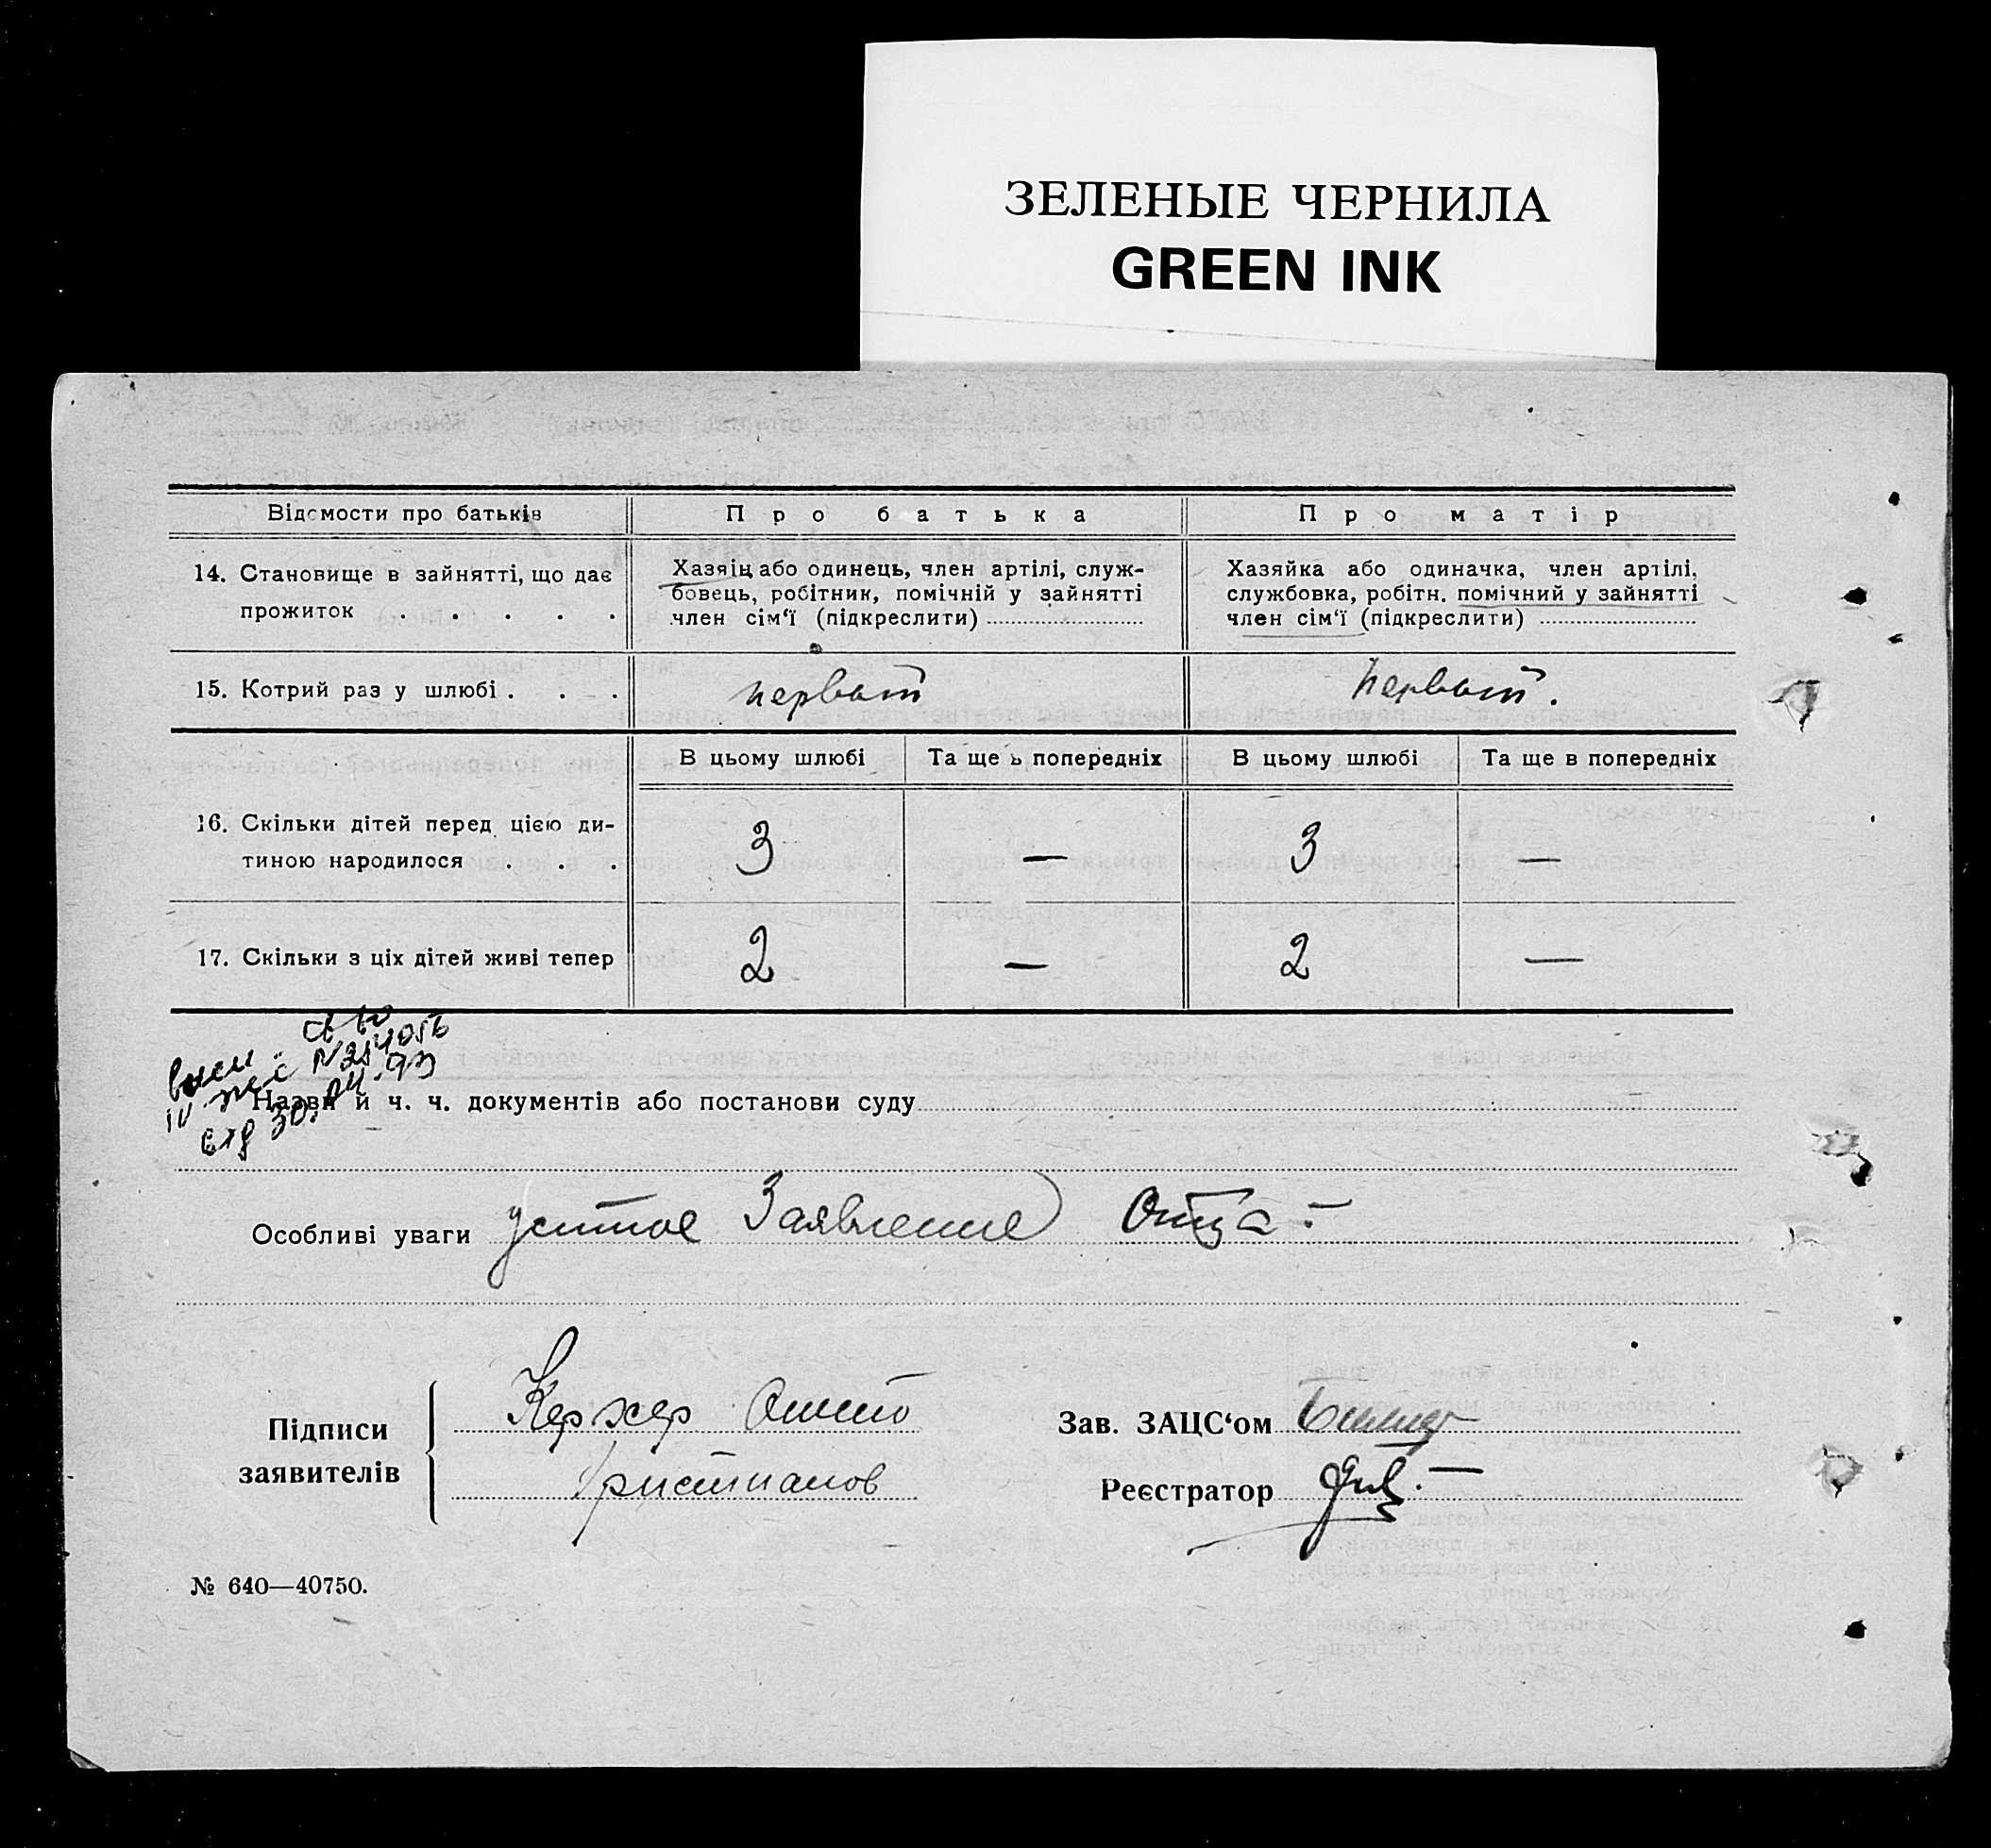 ЗЕЛЕНЫЕ ЧЕРНИЛА
GREEN INK
Відомости про батьків
Про батька
Про матір
14. Становище в зайнятті, що дає
прожиток . . . . .
Хазяїн або одинець, член артілі, служ-
бовець, робітник, помічній у зайнятті
член сім'ї (підкреслити)
Хазяйка або одиначка, член артілі,
службовка, робітн. помічний у зайнятті
член сім'ї (підкреслити)
15. Котрий раз у шлюбі . . .
первый
первый.
В цьому шлюбі
Та ще в попередніх
В цьому шлюбі
Та ще в попередніх
16. Скільки дітей перед цією ди-
тиною народилося . . .
3
—
3
—
17. Скільки з ціх дітей живі тепер
2
—
2
—
св-во
30.04.93
Назви й ч. ч. документів або постанови суду
Особливі уваги устное Заявление Отца -
Підписи
заявителів
Керхер
Христианов
Зав. ЗАЦС'ом
Реєстратор
№ 640—40750.